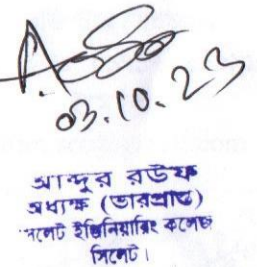 03.10.23
আব্দুর রউফ
অধ্যক্ষ (ভারপ্রাপ্ত)
সিলেট ইঞ্জিনিয়ারিং কলেজ
সিলেট।